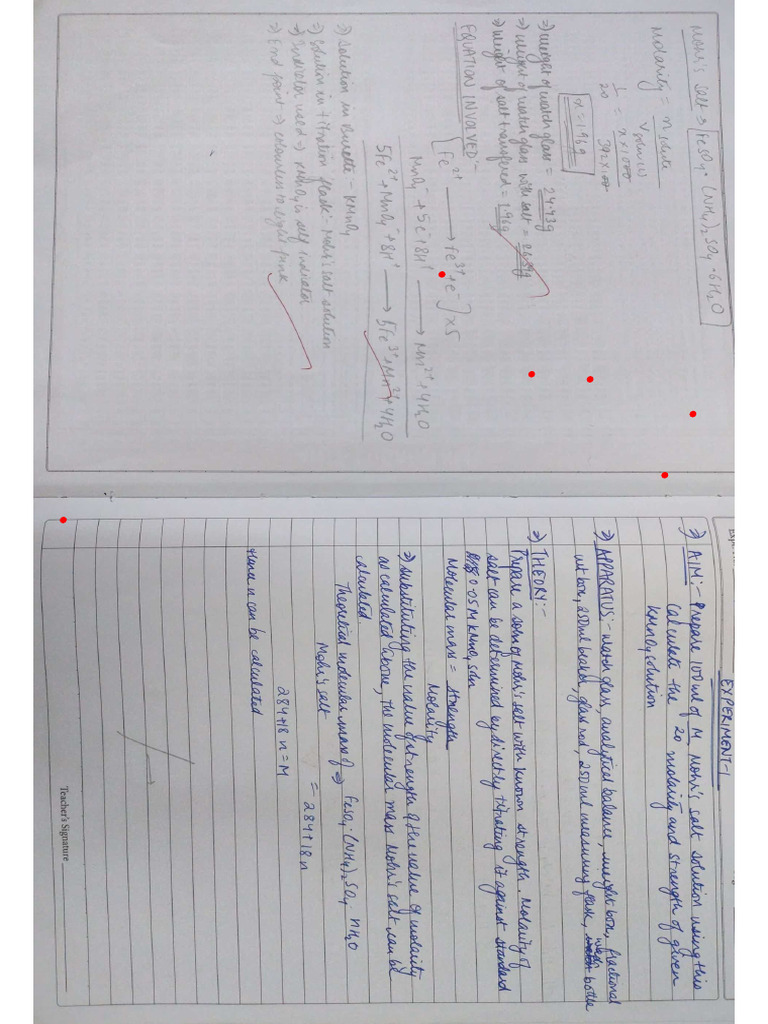 Mohr's salt → FeSO4·(NH4)2SO4·6H2O
Molarity = n solute
V soln (l)
1/20 = x × 1000
392 × 100
x = 1.96g
⇒ weight of watch glass = 24.43g
⇒ weight of watch glass with salt = 26.39g
⇒ weight of salt transfered = 1.96g
EQUATION INVOLVED:-
[Fe2+ ⟶ Fe3+ + e-] × 5
MnO4- + 5e- + 8H+ ⟶ Mn2+ + 4H2O
5Fe2+ + MnO4- + 8H+ ⟶ 5Fe3+ + Mn2+ + 4H2O
⇒ Solution in Burette - KMnO4
⇒ Solution in titration flask: Mohr's salt solution
⇒ Indicator used ⇒ KMnO4 is self indicator
⇒ End point ⇒ colourless to light pink
EXPERIMENT-1
⇒ AIM:- Prepare 100 ml of M Mohr's salt solution using this
20
calculate the molarity and strength of given
KMnO4 solution
⇒ APPARATUS:- watch glass, analytical balance, weight box, fractional
wt box, 250ml beaker, glass rod, 250 ml measuring flask, wash bottle
⇒ THEORY:-
Prepare a soln of Mohr's salt with known strength. Molarity of
salt can be determined by directly titrating it against standard
0.05M KMnO4 soln
Molecular mass = strength
Molarity
⇒ substituting the value of strength & the value of molarity
as calculated above, the molecular mass Mohr's salt can be
calculated
Theoretical molecular mass of ⇒ FeSO4·(NH4)2SO4 nH2O
Mohr's salt
= 284 + 18n
284 + 18n = M
Hence n can be calculated
Teacher's Signature